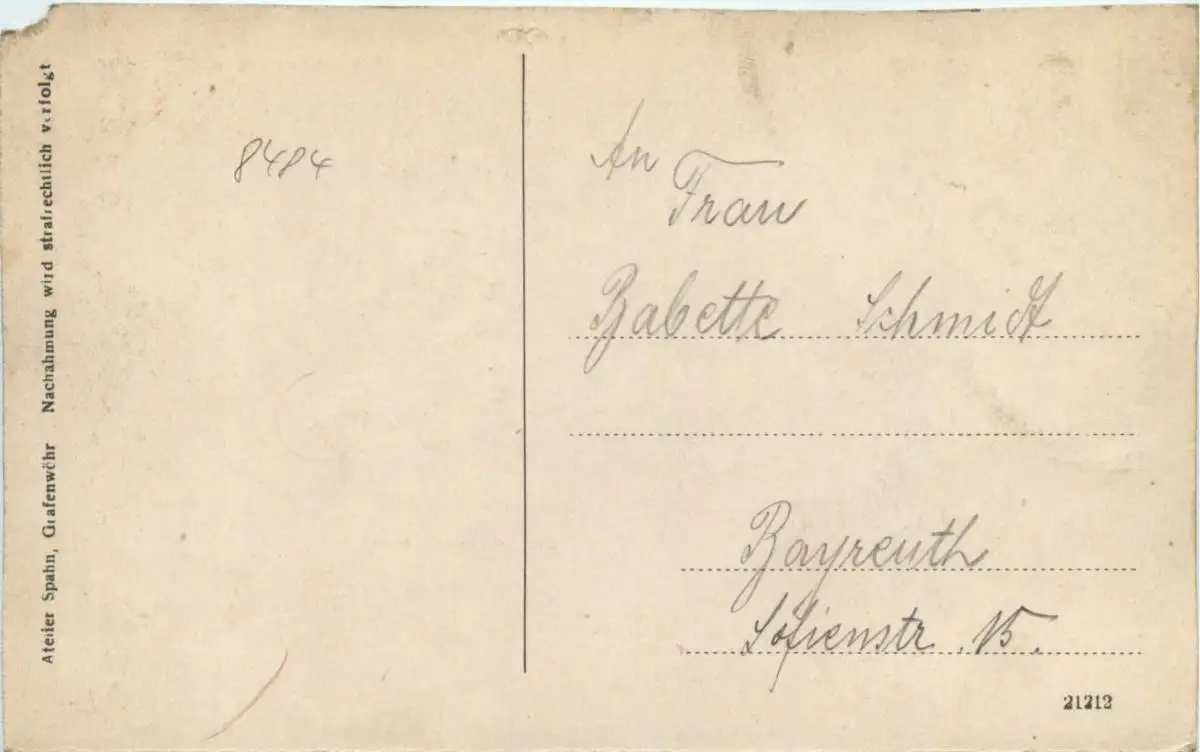 Atelier Spahn, Grafenwöhr Nachahmung wird strafrechtlich verfolgt
8484
An
Frau
Babette Schmidt
Bayreuth
Sofienstr. 15.
21212